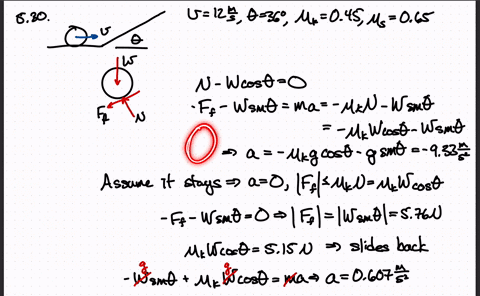 5.20.
v = 12 m/s, θ = 36°, μk = 0.45, μs = 0.65
v
θ
W
Ff
N
N - Wcosθ = 0
-Ff - Wsinθ = ma = -μkN - Wsinθ
= -μkWcosθ - Wsinθ
⇒ a = -μkgcosθ - gsinθ = -9.33 m/s²
Assume it stays ⇒ a = 0, |Ff| ≤ μkN = μkWcosθ
-Ff - Wsinθ = 0 ⇒ |Ff| = |Wsinθ| = 5.76N
μkWcosθ = 5.15N ⇒ slides back
g g
-Wsinθ + μkWcosθ = ma ⇒ a = 0.607 m/s²